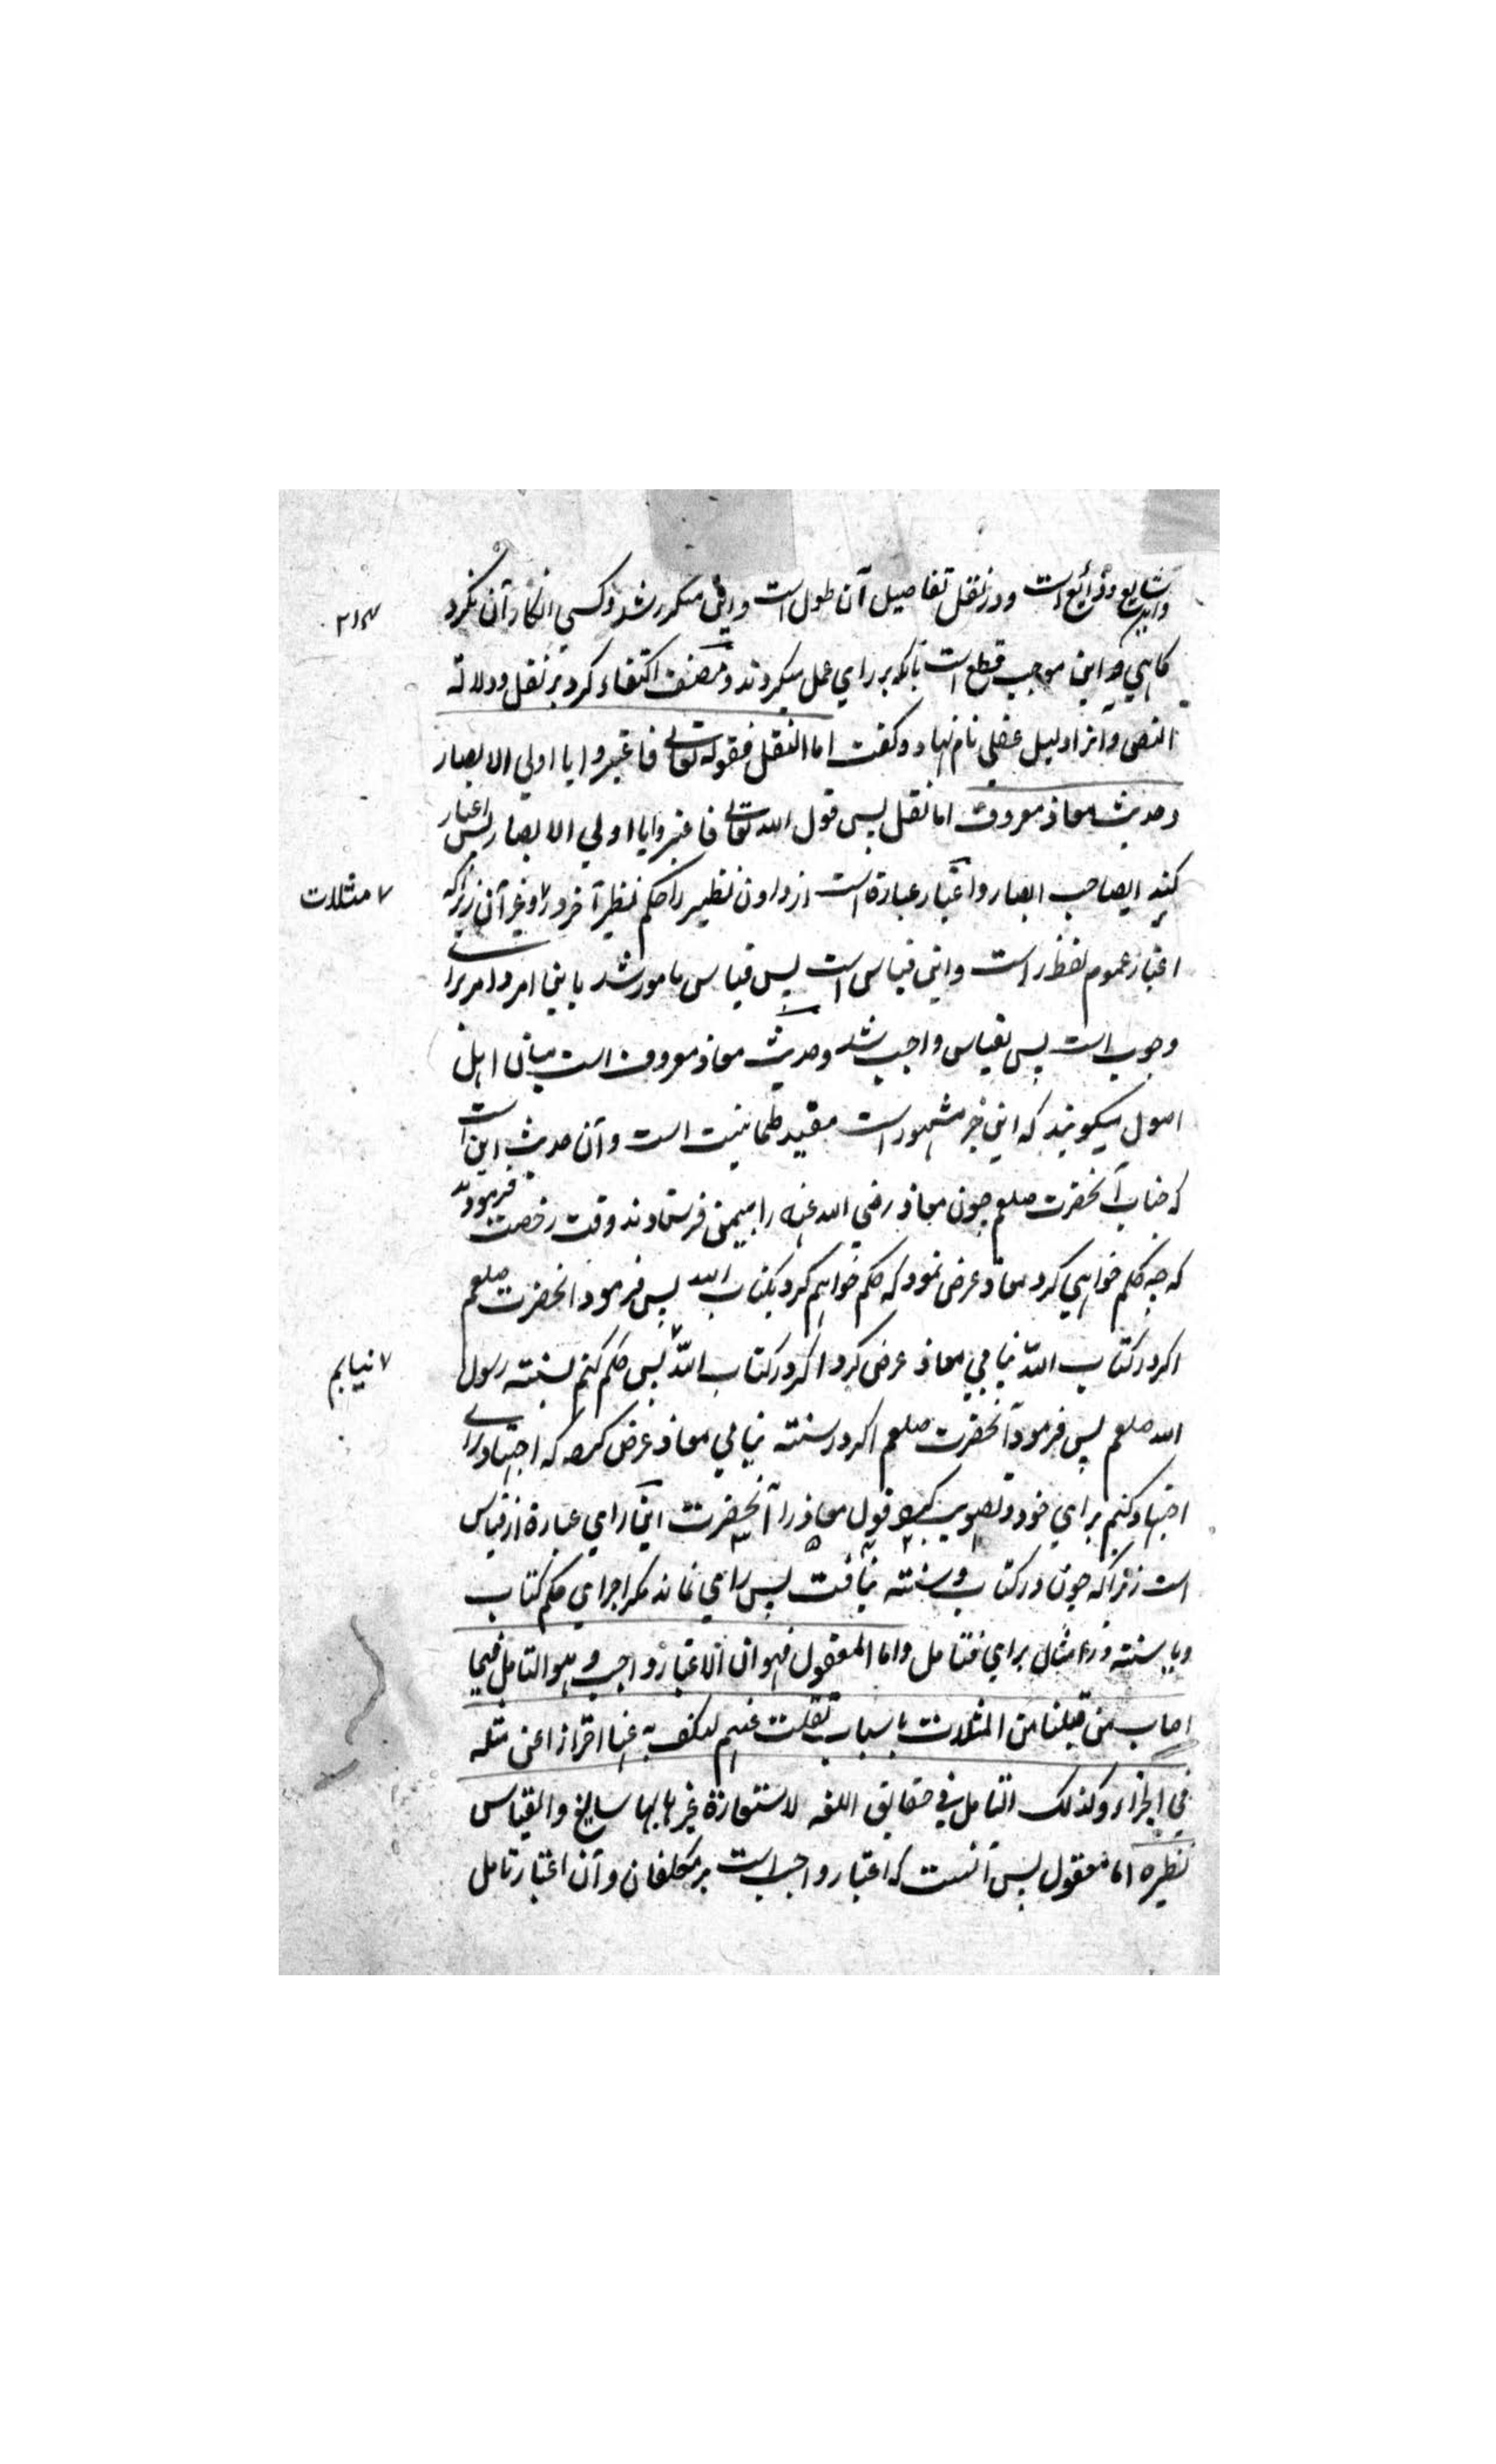 شایع و ذرایع است و در نقل تفاصیل آن طول است و این مکرر شد و کسی انکار آن نکرد
کاهی و این موجب قطع است بانکه بر رای عمل میکردند و مصنف اکتفاء کرد بر نقل و دلالة
النص و آنرا دلیل عقلی نام نهاد و کفت اما النقل فقوله تعالی فاعتبروا یا اولی الابصار
و حدیث معاذ معروف اما نقل پس قول الله تعالی فاعتبروا یا اولی الابصار پس اعتبار
کنید ایصاحب ابصار و اعتبار عبارة است از رد نظیر را حکم نظیر آخر و غیر آن زیراکه
اعتبار عموم لفظ راست و این قیاس است پس قیاس مامور شد باین امر و امر برای
وجوب است پس قیاس واجب شد و حدیث معاذ معروف است میان اهل
اصول میکویند که این خبر مشهور است مفید طمانینت است و آن حدیث این است
که جناب آنحضرت صلعم چون معاذ رضی الله عنه را بیمن فرستادند وقت رخصت فرمودند
که چه حکم خواهی کرد معاذ عرض نمود که حکم خواهم کرد بکتاب الله پس فرمود انحضرت صلعم
اکر در کتاب الله نیابی معاذ عرض کرد اکر در کتاب الله پس حکم کنم بسنته رسول
الله صلعم پس فرمود آنحضرت صلعم اکر در سنته نیابی معاذ عرض کرد که اجتهاد رای
اجتهاد کنم برای خود و تصویب کرد قول معاذ را آنحضرت این رای عبارة از قیاس
است زیراکه چون در کتاب و سنته نیافت پس رای نماند مکر اجرای حکم کتاب
و یا سنته در امثال برای فتامل و اما المعقول فهو ان الاعتبار واجب و هو التامل فیما
اصاب من قبلنا من المثلات باسباب نقلت عنهم لنکف عنها احترازا عن مثله
فی الجزاء و کذلک التامل فی حقایق اللغه لاستعارة غیرها بها سایغ و القیاس
نظیره اما معقول پس آنست که اعتبار واجب است بر مکلفان و آن اعتبار تامل
۷ مثلات
۷ نیابم